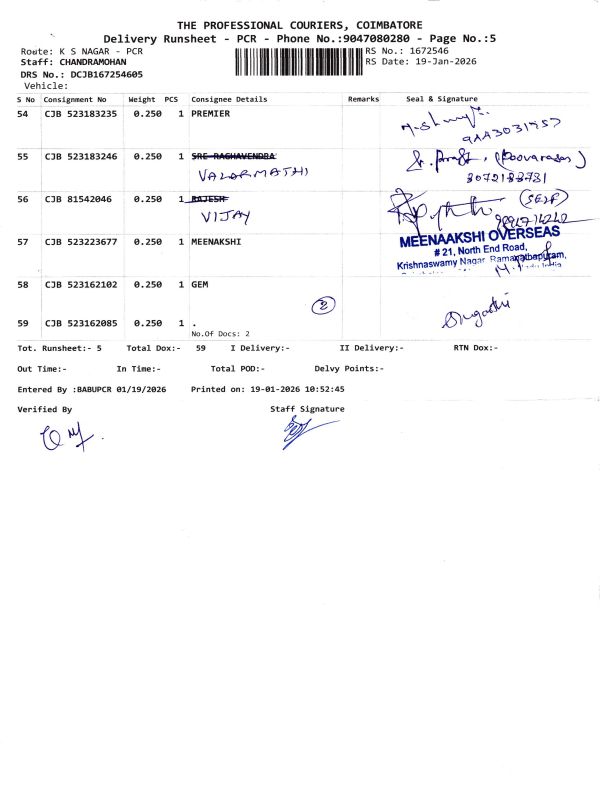 THE PROFESSIONAL COURIERS, COIMBATORE
Delivery Runsheet - PCR - Phone No.:9047080280 - Page No.:5
Route: K S NAGAR - PCR
RS No.: 1672546
Staff: CHANDRAMOHAN
RS Date: 19-Jan-2026
DRS No.: DCJB167254605
Vehicle:
S No Consignment No Weight PCS Consignee Details Remarks Seal & Signature
54 CJB 523183235 0.250 1 PREMIER
55 CJB 523183246 0.250 1 SRE RAGHAVENDRA
VALARMATHI
56 CJB 81542046 0.250 1 RAJESH (SELF)
VIJAY
MEENAAKSHI OVERSEAS
57 CJB 523223677 0.250 1 MEENAKSHI
# 21, North End Road,
Krishnaswamy Nagar, Ramanathapuram,
58 CJB 523162102 0.250 1 GEM
2
59 CJB 523162085 0.250 1 .
No.Of Docs: 2
Tot. Runsheet:- 5 Total Dox:- 59 I Delivery:- II Delivery:- RTN Dox:-
Out Time:- In Time:- Total POD:- Delvy Points:-
Entered By :BABUPCR 01/19/2026 Printed on: 19-01-2026 10:52:45
Verified By Staff Signature